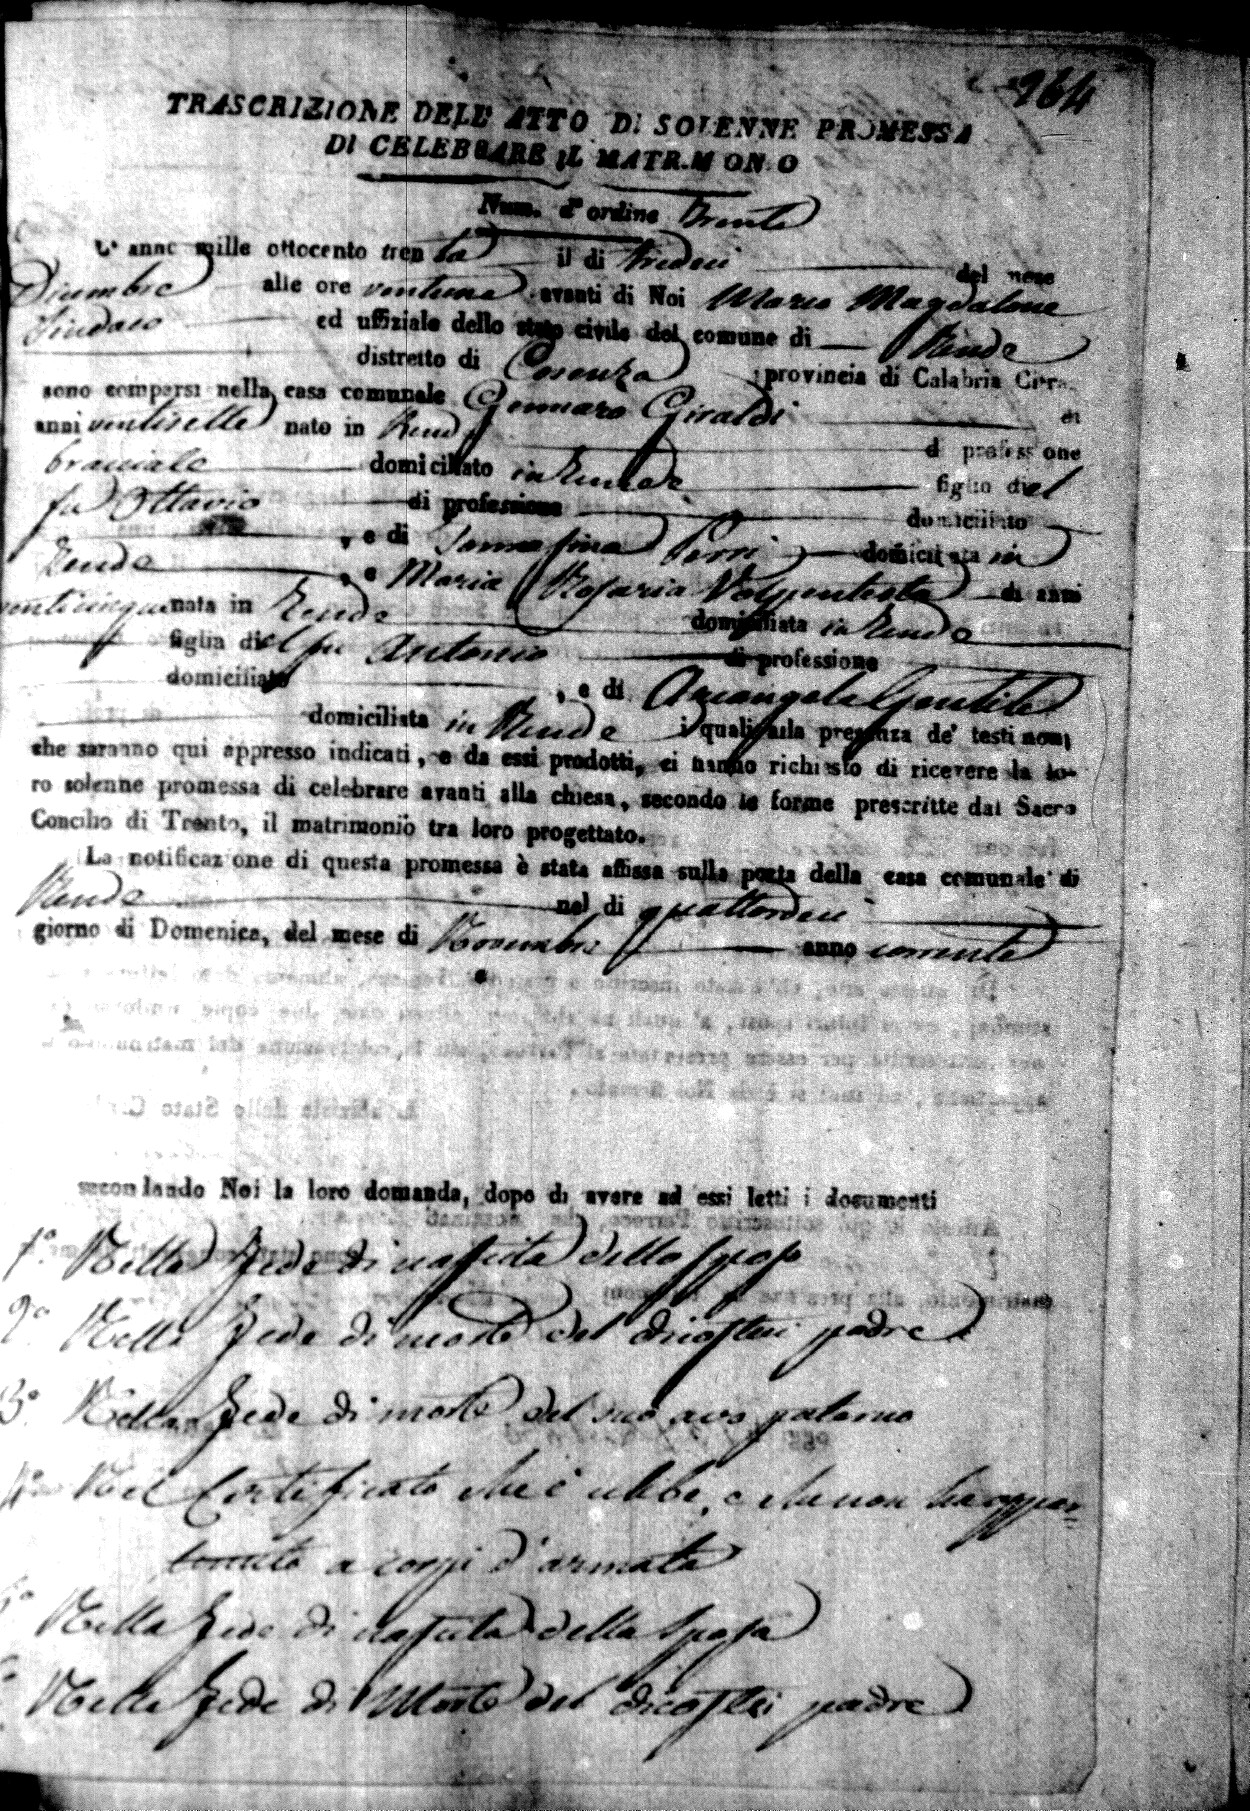 264
TRASCRIZIONE DELL' ATTO DI SOLENNE PROMESSA
DI CELEBRARE IL MATRIMONIO
Num. d'ordine Trenta
L' anno mille ottocento trenta il di tredici del mese
Dicembre alle ore ventuna avanti di Noi Mario Magdalone
Sindaco ed uffiziale dello stato civile del comune di Rende
distretto di Cosenza provincia di Calabria Citra
sono comparsi nella casa comunale Gennaro Giraldi di
anni ventisette nato in Rende di professione
bracciale domiciliato in Rende figlio del
fu Ottavio di professione domiciliato
, e di Serrafina Perri domiciliata in
Rende , e Maria Rosaria Volpentesta di anni
venticinque nata in Rende domiciliata in Rende
figlia del fu Antonio di professione
domiciliato , e di Arcangela Gentile
domiciliata in Rende i quali alla presenza de' testimonj
che saranno qui appresso indicati, e da essi prodotti, ci hanno richiesto di ricevere la lo-
ro solenne promessa di celebrare avanti alla chiesa, secondo le forme prescritte dal Sacro
Concilio di Trento, il matrimonio tra loro progettato.
La notificazione di questa promessa è stata affissa sulla porta della casa comunale di
Rende nel di quattordeci
giorno di Domenica, del mese di Novembre anno corrente
secondando Noi la loro domanda, dopo di avere ad essi letti i documenti
1° Nella Fede di nascita dello Sposo
2° Nella Fede di morte del dicostui padre
3° Nella Fede di morte del suo avo paterno
4° Nel Certificato che è celibe, e che non ha appar=
tenuto a corpi d'armata
5° Nella Fede di nascita della Sposa
6° Nella Fede di Morte del dicostei padre